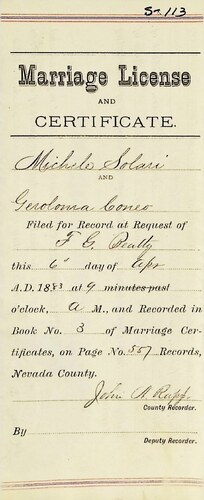 So 113
Marriage License
AND
CERTIFICATE.
Michele Solari
AND
Geroloma Coneo
Filed for Record at Request of
F G. Beatty
this 6" day of Apr
A.D. 1883 at 9 minutes past
o'clock, A M., and Recorded in
Book No. 3 of Marriage Cer-
tificates, on Page No. 557 Records,
Nevada County.
John A. Rapp
County Recorder.
By
Deputy Recorder.